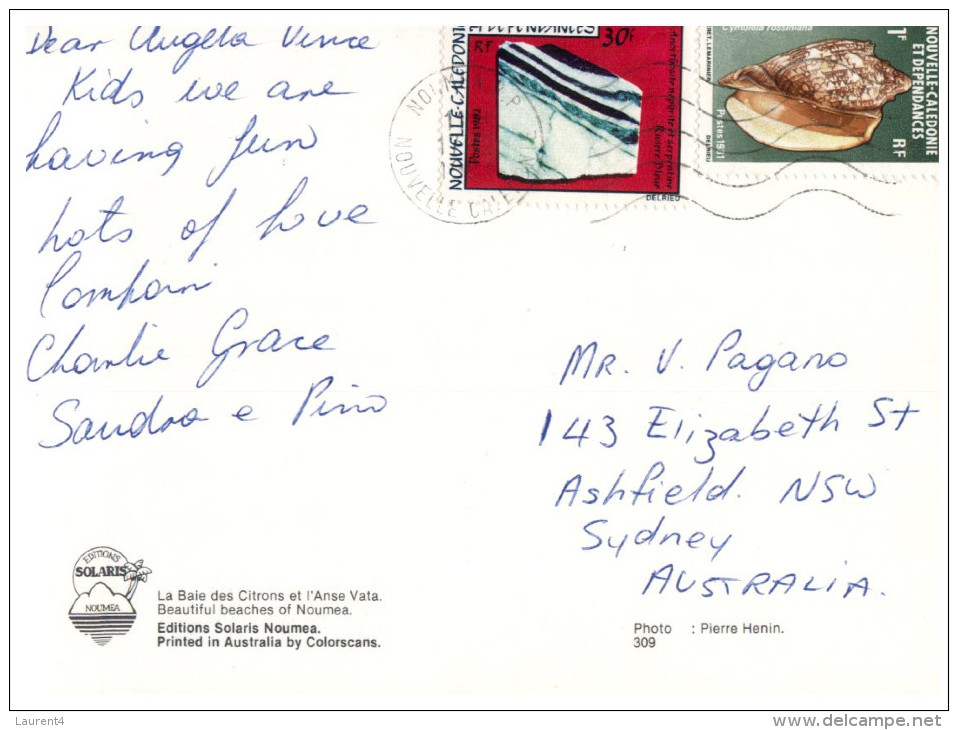 Dear Angela Vince
Kids we are
having fun
hots of hove
Charlie Grace
Sandra e Pino
NOUVELLE-CALEDONIE
ET DEPENDANCES
30F
RF
Postes 1982
Rivière Bleue
DELRIEU
NOUVELLE CALE
Cymbiola rossiniana
1F
NOUVELLE-CALEDONIE
ET DEPENDANCES
RF
Postes 1981
DELRIEU
MR. V. Pagano
143 Elizabeth St
Ashfield. NSW
Sydney
AUSTRALIA.
EDITIONS
SOLARIS
NOUMEA
La Baie des Citrons et l'Anse Vata.
Beautiful beaches of Noumea.
Editions Solaris Noumea.
Printed in Australia by Colorscans.
Photo : Pierre Henin.
309
Laurent4
www.delcampe.net